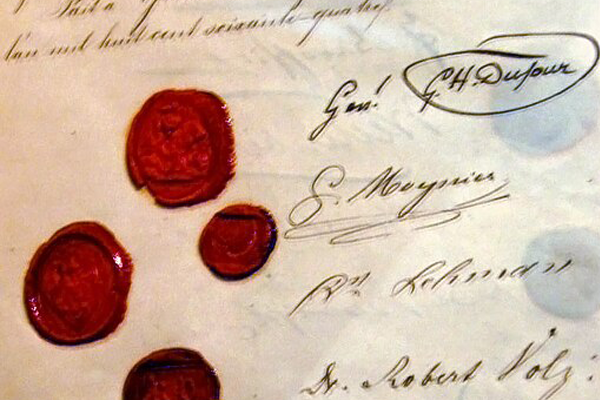 Fait à
l'an mil huit cent soixante-quatre
Gen'l G. H. Dufour
G. Moynier
Lehmann
Dr. Robert Volz